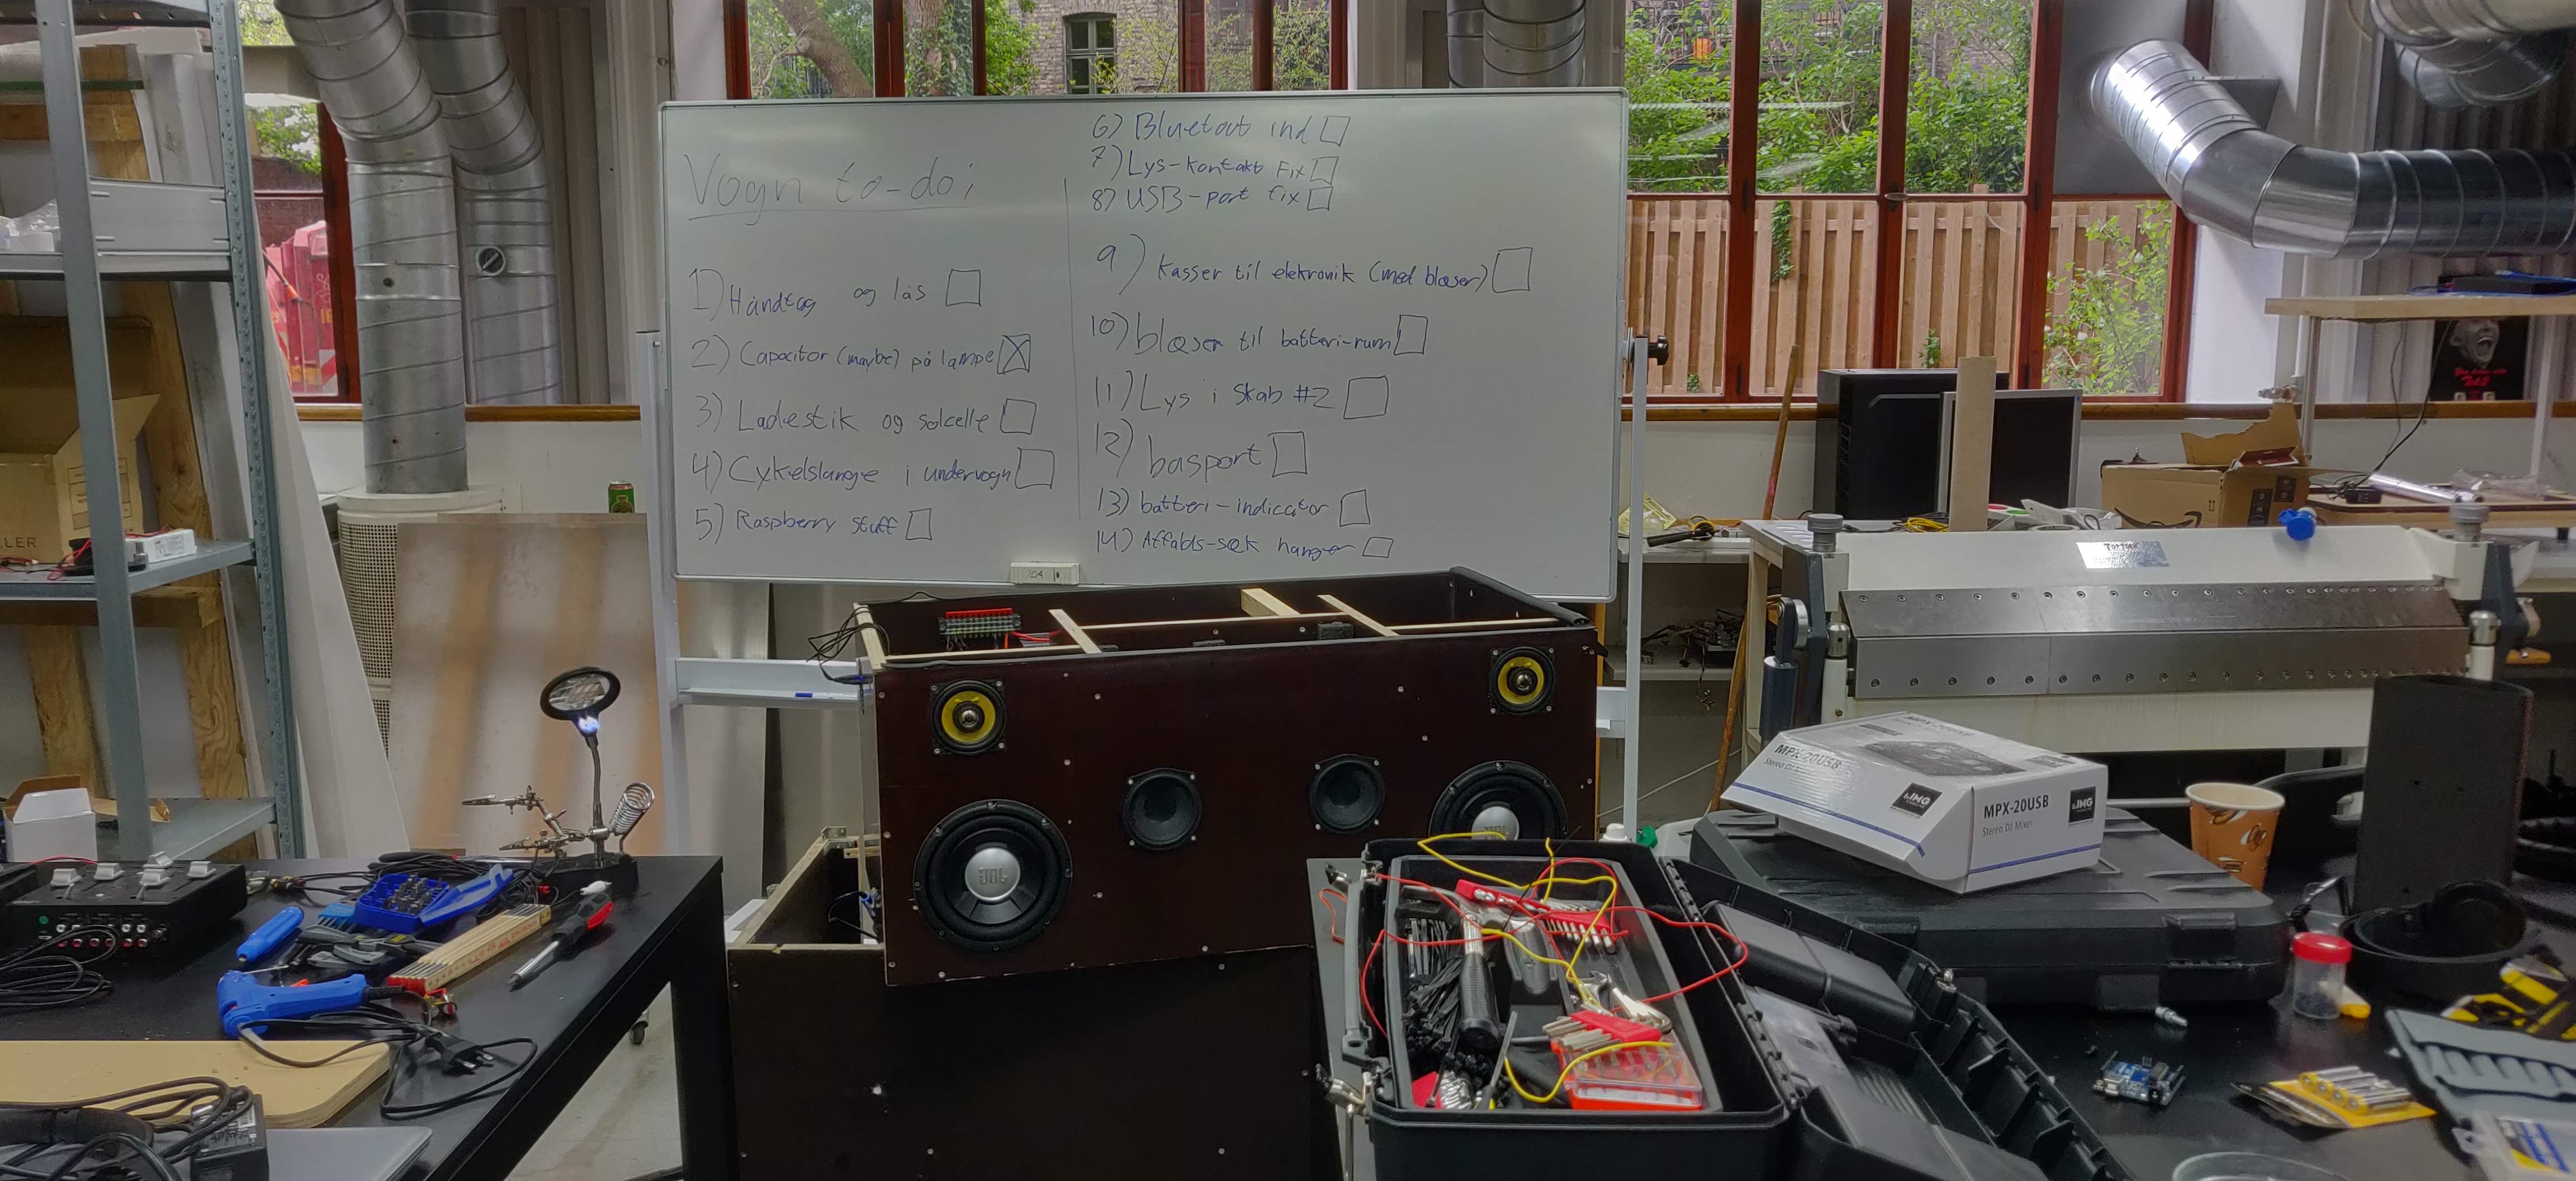 Vogn to-do:
1) Håndtag og lås
2) Capacitor (maybe) på lampe
3) Ladestik og solcelle
4) Cykelslange i undervogn
5) Raspberry stuff
6) Bluetout ind
7) Lys-kontakt Fix
8) USB-port fix
9) Kasser til elektronik (med blæser)
10) blæser til batteri-rum
11) Lys i skab #2
12) basport
13) batteri-indicator
14) Affalds-sæk hanger
LLER
JBL
JBL
MPX-20USB
Stereo DJ Mixer
IMG
MPX-20USB
Stereo DJ Mixer
IMG